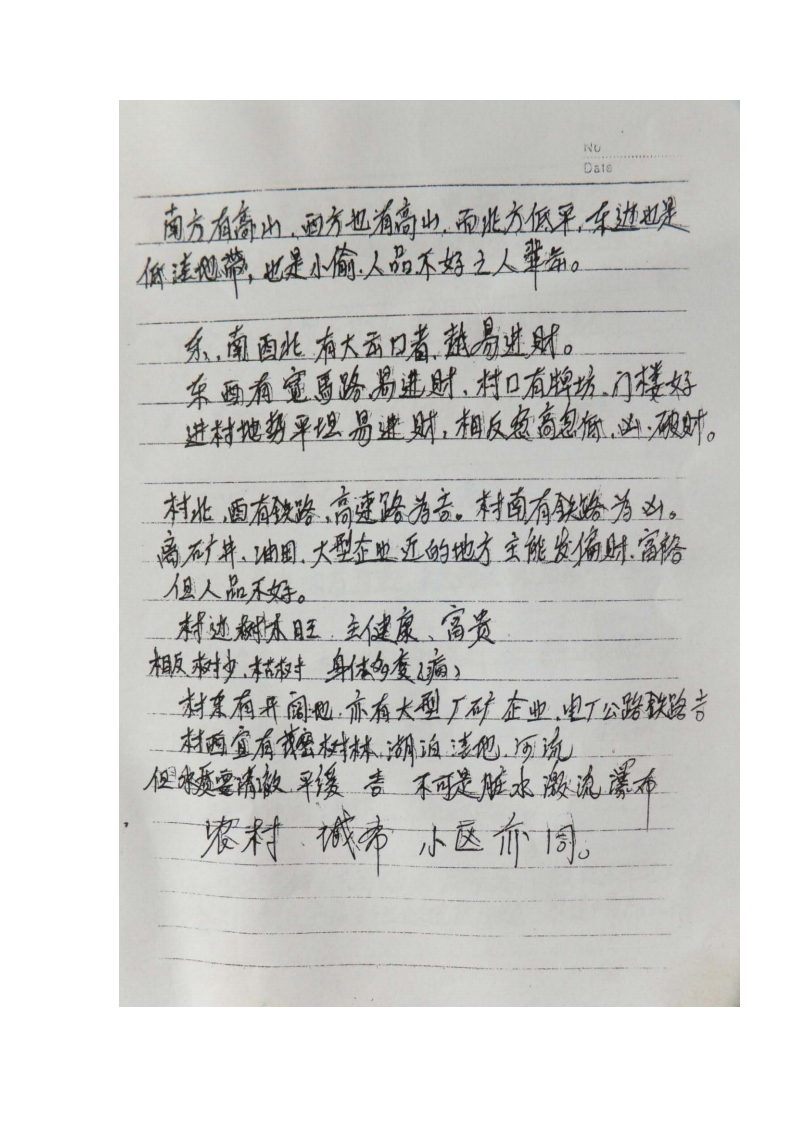 No
Date
南方有高山、西方也有高山，而北方低平，东边也是
低洼地带，也是小偷、人品不好之人辈出。
东、南西北 有大 口者，越易进财。
东西有宽马路易进财，村口有牌坊、门楼好
进村地势平坦易进财，相反 高急低，凶、破财。
村北、西有铁路、高速路为吉。村南有铁路为凶。
离矿井、油田、大型企业近的地方 主能发偏财、富裕
但人品不好。
村边树木旺 主健康、富贵
相反树少、枯树 身体多变（病）
村东有开阔地，亦有大型厂矿企业、电厂公路铁路吉
村西宜有茂密树林、湖泊洼地、河流
但水质要清澈 平缓 吉 不可是脏水 激流 瀑布
农村、城市 小区亦同。